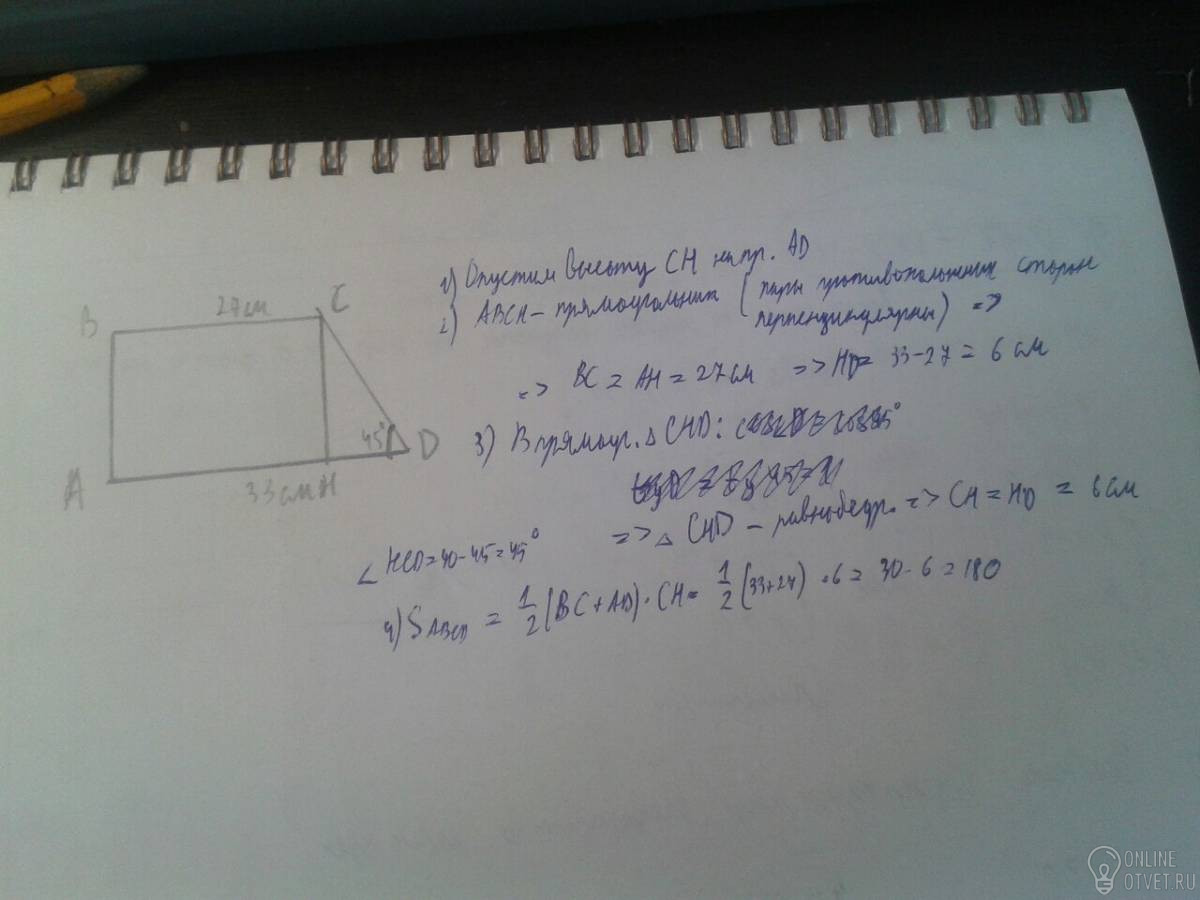 1) Опустим высоту CH на пр. AD
2) ABCH – прямоугольник (пары противоположных сторон
перпендикулярны) =>
=> BC = AH = 27 см => HD = 33-27 = 6 см
3) В прямоуг. △ CHD:
∠ HCD = 90-45 = 45°
=> △ CHD – равнобедр. => CH = HD = 6 см
4) S ABCD = 1/2 (BC + AD) · CH = 1/2 (33+27) · 6 = 30 · 6 = 180
B
27 см
C
45°
D
A
33 см
H
ONLINE
OTVET.RU